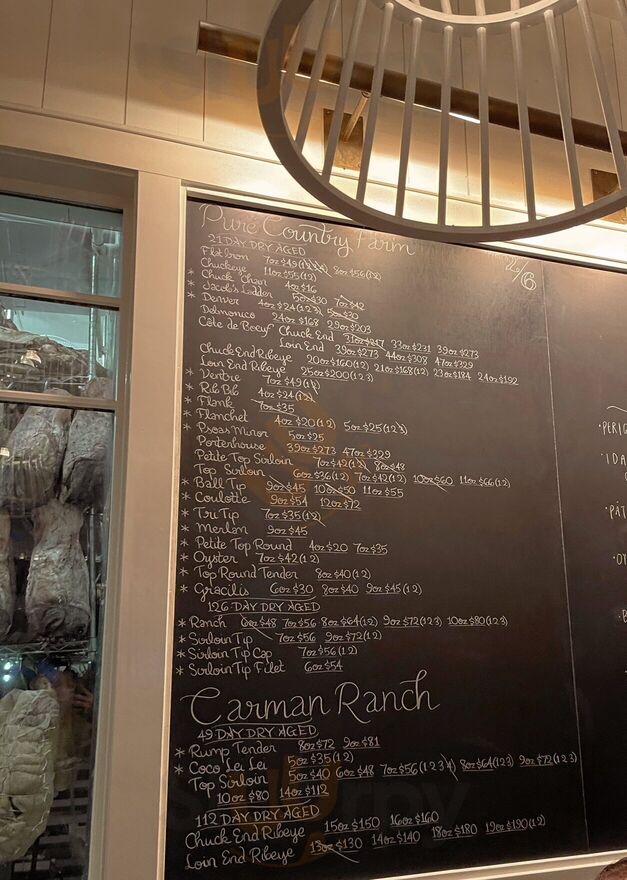 Pure Country Farm
2/6
21 DAY DRY AGED
Flat Iron 7oz $49 (1234) 8oz $56 (12)
Chuckeye 11oz $55 (12)
* Chuck Chain 4oz $16
* Jacob's Ladder 5oz $30 7oz $42
* Denver 4oz $24 (123) 5oz $30
Delmonico 24oz $168 29oz $203
Côte de Boeuf Chuck End 31oz $217 33oz $231 39oz $273
Loin End 39oz $273 44oz $308 47oz $329
Chuck End Ribeye 20oz $160 (12) 21oz $168 (12) 23oz $184 24oz $192
Loin End Ribeye 25oz $200 (123)
* Ventre 7oz $49 (1)
* Rib Bib 4oz $24 (12)
* Flank 7oz $35
* Flanchet 4oz $20 (12) 5oz $25 (123)
* Psoas Minor 5oz $25
Porterhouse 39oz $273 47oz $329
Petite Top Sirloin 7oz $42 (12) 8oz $48
Top Sirloin 6oz $36 (12) 7oz $42 (12) 10oz $60 11oz $66 (12)
* Ball Tip 9oz $45 10oz $50 11oz $55
* Coulotte 9oz $54 12oz $72
* Tri Tip 7oz $35 (12)
* Merlan 9oz $45
* Petite Top Round 4oz $20 7oz $35
* Oyster 7oz $42 (12)
* Top Round Tender 8oz $40 (12)
* Gracilis 6oz $30 8oz $40 9oz $45 (12)
126 DAY DRY AGED
* Ranch 6oz $48 7oz $56 8oz $64 (12) 9oz $72 (123) 10oz $80 (123)
* Sirloin Tip 7oz $56 9oz $72 (12)
* Sirloin Tip Cap 7oz $56 (12)
* Sirloin Tip Filet 6oz $54
Carman Ranch
49 DAY DRY AGED
* Rump Tender 8oz $72 9oz $81
* Coco Lei Lei 5oz $35 (12)
Top Sirloin 5oz $40 6oz $48 7oz $56 (1234) 8oz $64 (123) 9oz $72 (123)
10oz $80 14oz $112
112 DAY DRY AGED
Chuck End Ribeye 15oz $150 16oz $160
Loin End Ribeye 13oz $130 14oz $140 18oz $180 19oz $190 (12)